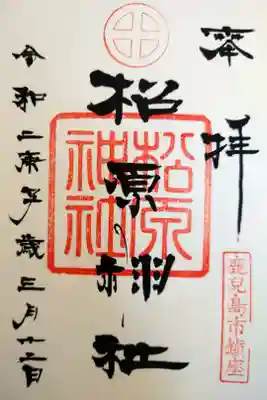 奉拝
鹿兒島市鎮座
松原神社
松原神社
令和二庚子歳三月十二日